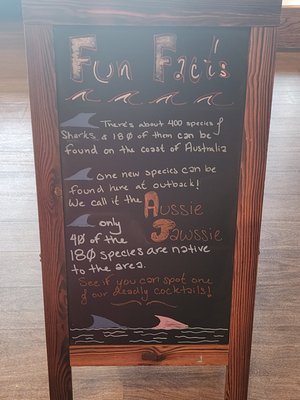 Fun Facts
There's about 400 species of
Sharks & 180 of them can be
found on the coast of Australia
One new species can be
found here at outback!
We call it the Aussie
Jawssie
only
40 of the
180 species are native
to the area.
See if you can spot one
of our deadly cocktails!